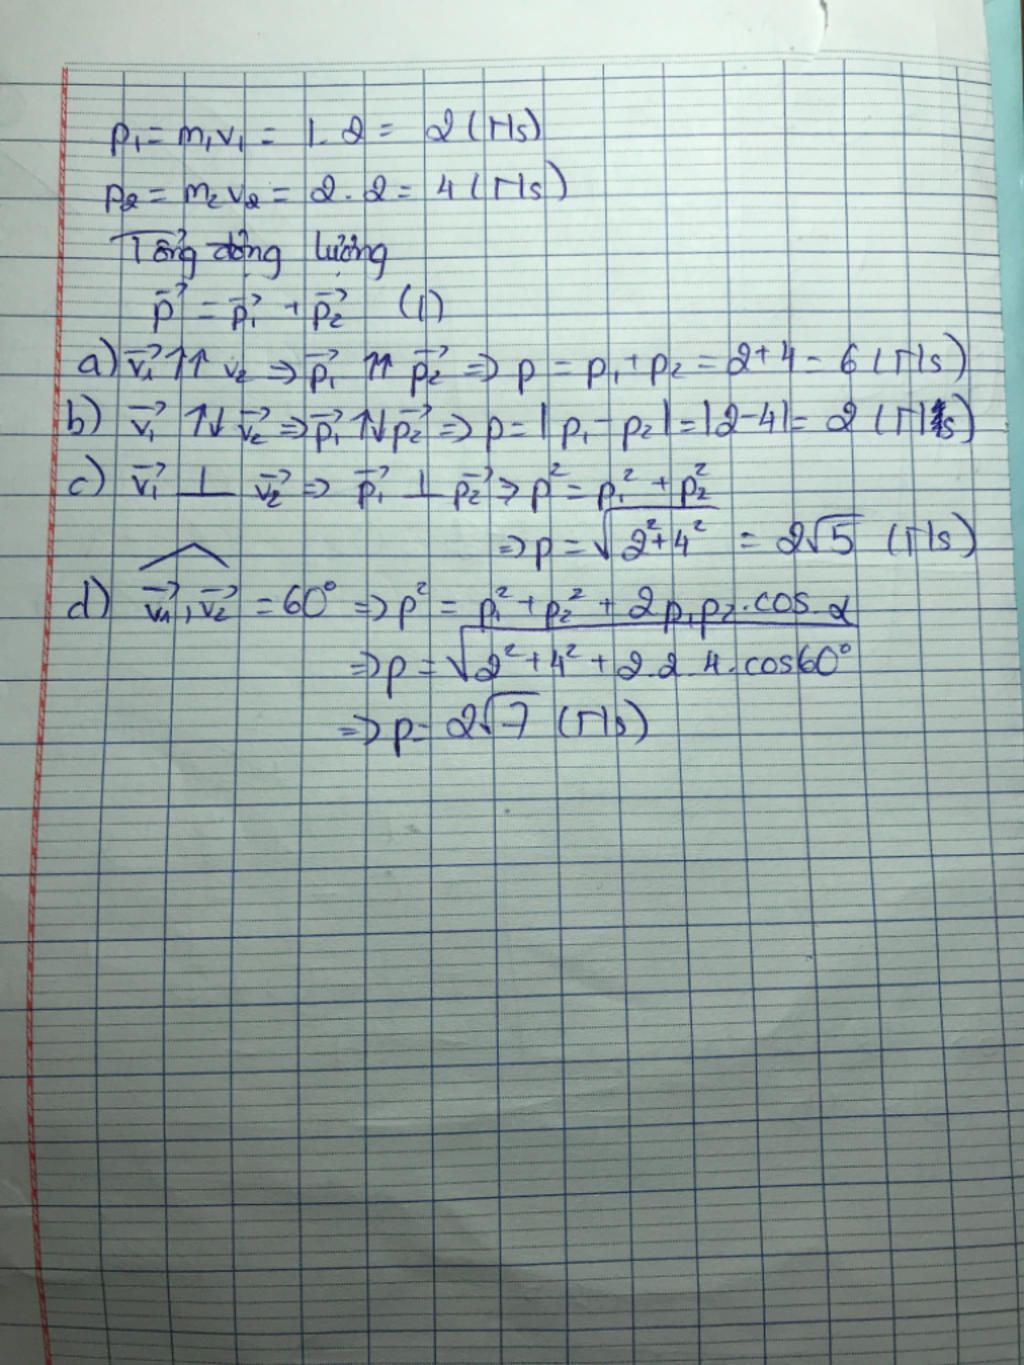 p₁ = m₁v₁ = 1.2 = 2 (N/s)
p₂ = m₂v₂ = 2.2 = 4 (N/s)
Tổng động lượng
p⃗ = p⃗₁ + p⃗₂ (1)
a) v⃗₁ ↑↑ v₂ => p⃗₁ ↑↑ p⃗₂ => p = p₁ + p₂ = 2+4 = 6 (N/s)
b) v⃗₁ ↑↓ v⃗₂ => p⃗₁ ↑↓ p⃗₂ => p = |p₁ - p₂| = |2-4| = 2 (N/s)
c) v⃗₁ ⊥ v⃗₂ => p⃗₁ ⊥ p⃗₂ => p² = p₁² + p₂²
=> p = √(2²+4²) = 2√5 (N/s)
d) v⃗₁, v⃗₂ = 60° => p² = p₁² + p₂² + 2p₁p₂.cos.α
=> p = √(2² + 4² + 2.2.4.cos60°)
=> p = 2√7 (N/s)